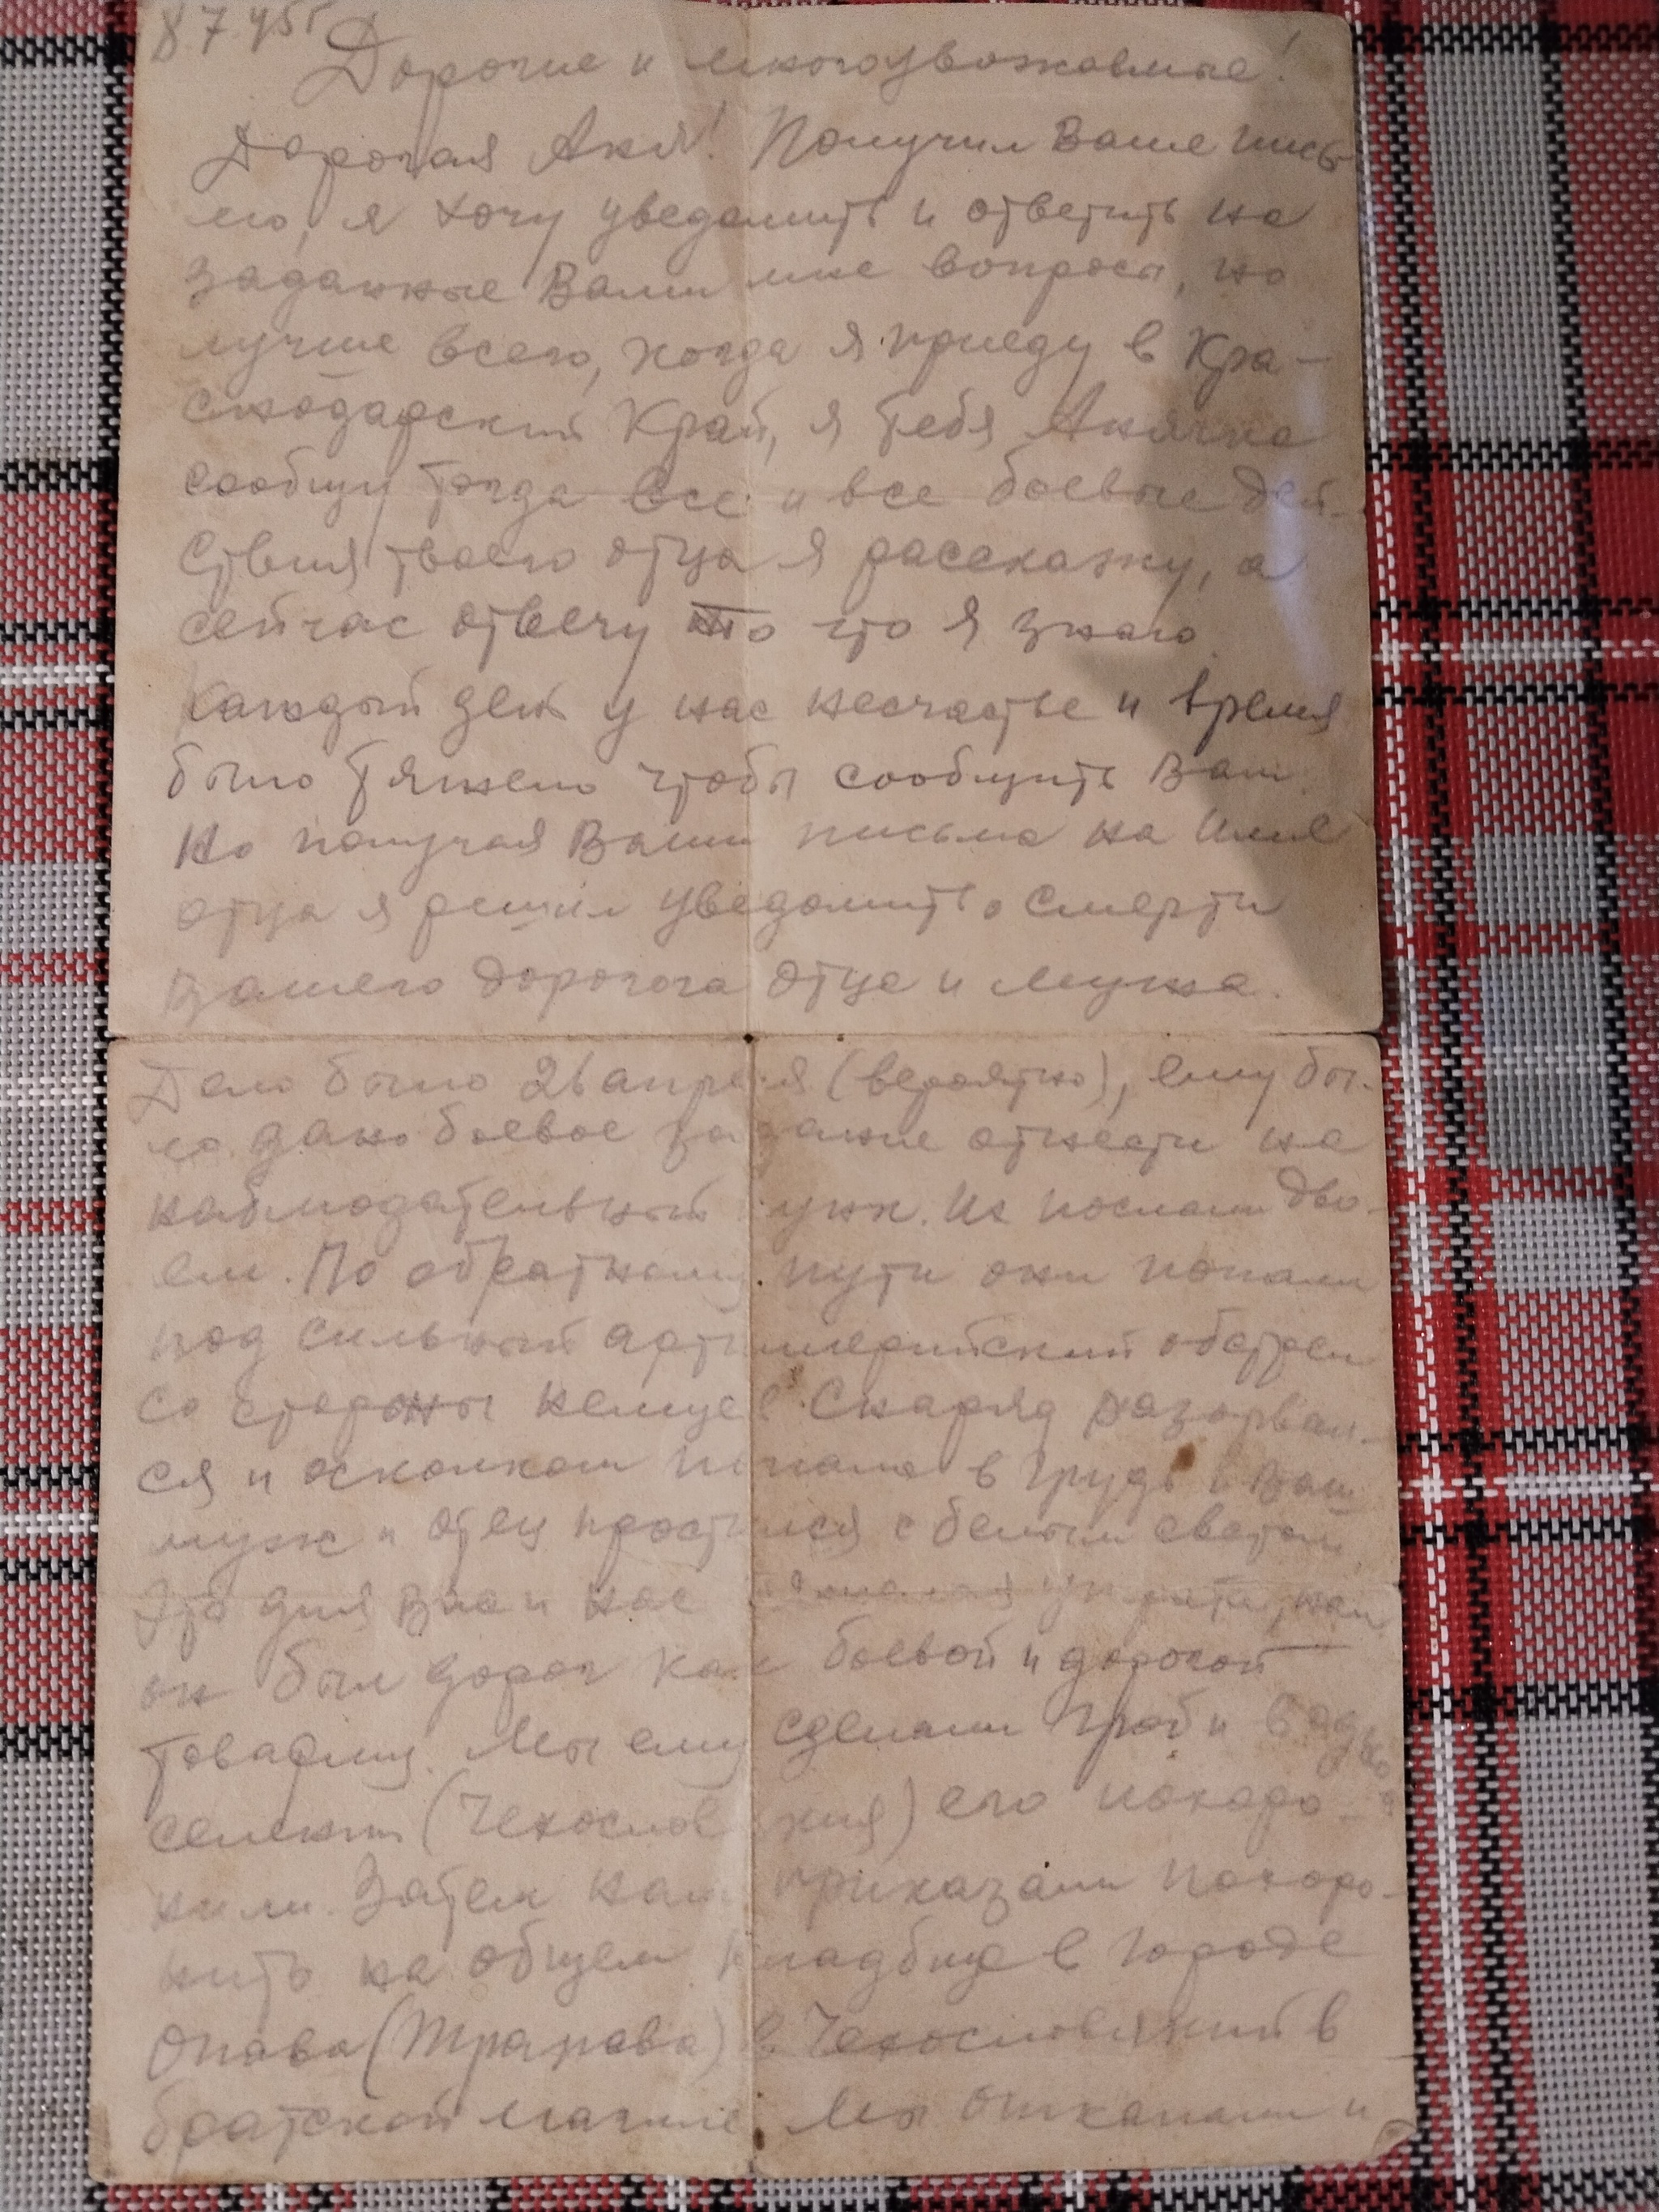 8.7.45г
Дорогие и многоуважаемые!
Дорогая Аня! Получил Ваше пись
мо, я хочу уведомить и ответить на
заданные Вами мне вопросы, но
лучше всего, когда я приеду в Кра-
снодарский Край, я тебя Анячка
сообщу тогда все и все боевые дей-
ствия твоего отца я расскажу, а
сейчас отвечу то что я знаю.
Каждый ден у нас несчастье и время
было тяжело чтобы сообщить Вам.
Но получая Ваши письма на имя
отца я решил уведомить о смерти
Вашего дорогога отца и мужа.
Дело было 26 апреля (вероятно), ему бы-
ло дано боевое задание отнести на
наблюдательный пунк. Их послали дво-
ем. По обратному пути они попали
под сильный артиллерийский обстрел
со стороны немцев. Снаряд разорвал-
ся и осколком попало в грудь и Ваш
муж и отец простился с белым светом.
Это для Вас и нас
он был дорог как боевой и дорогой
товарищ. Мы ему сделали гроб и в одно
селении (Чехословакия) его похоро-
нили. Затем нам приказали похоро-
нить на общем кладбище в городе
Опава в Чехословакии в
братской могиле. Мы откапали и